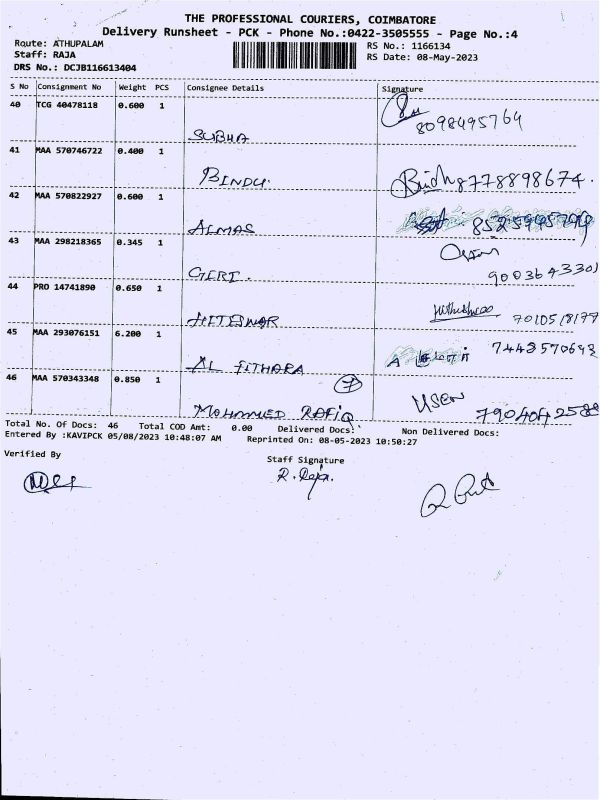 THE PROFESSIONAL COURIERS, COIMBATORE
Delivery Runsheet - PCK - Phone No.:0422-3505555 - Page No.:4
Route: ATHUPALAM
Staff: RAJA
DRS No.: DCJB116613404
RS No.: 1166134
RS Date: 08-May-2023
S No Consignment No Weight PCS Consignee Details Signature
40 TCG 40478118 0.600 1
SUBHA 8098495764
41 MAA 570746722 0.400 1
BINDU. 8778898674.
42 MAA 570822927 0.600 1
ALMAS
43 MAA 298218365 0.345 1
GERI. 9003643301
44 PRO 14741890 0.650 1
HITESWAR
45 MAA 293076151 6.200 1
AL FITHARA 7443570643
7
46 MAA 570343348 0.850 1
MOHAMMED RAFIQ USEN
Total No. Of Docs: 46 Total COD Amt: 0.00 Delivered Docs: Non Delivered Docs:
Entered By :KAVIPCK 05/08/2023 10:48:07 AM Reprinted On: 08-05-2023 10:50:27
Verified By
Staff Signature
R. Raja.